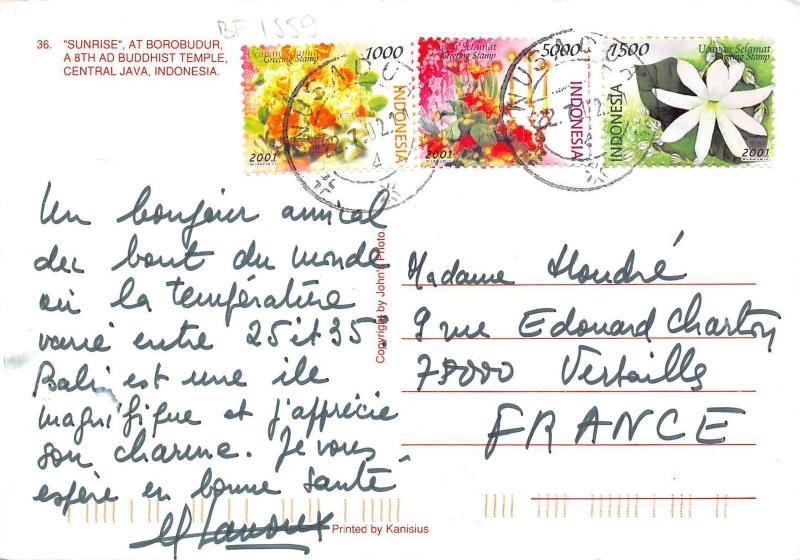 BF 1559
36. "SUNRISE", AT BOROBUDUR,
A 8TH AD BUDDHIST TEMPLE,
CENTRAL JAVA, INDONESIA.
Ucapan Selamat 1000
Greeting Stamp
INDONESIA
2001
Ucapan Selamat 5000
Greeting Stamp
INDONESIA
2001
1500 Ucapan Selamat
Greeting Stamp
INDONESIA
2001
NUSADUA
NUSADUA
Un bonjour amical
du bout du monde
où la température
varie entre 25 et 35°
Bali est une île
magnifique et j'apprécie
son charme. Je vous
espère en bonne santé
Copyright by John's Photo.
Madame Houdré
9 rue Edouard Charton
78000 Versailles
FRANCE
Printed by Kanisius